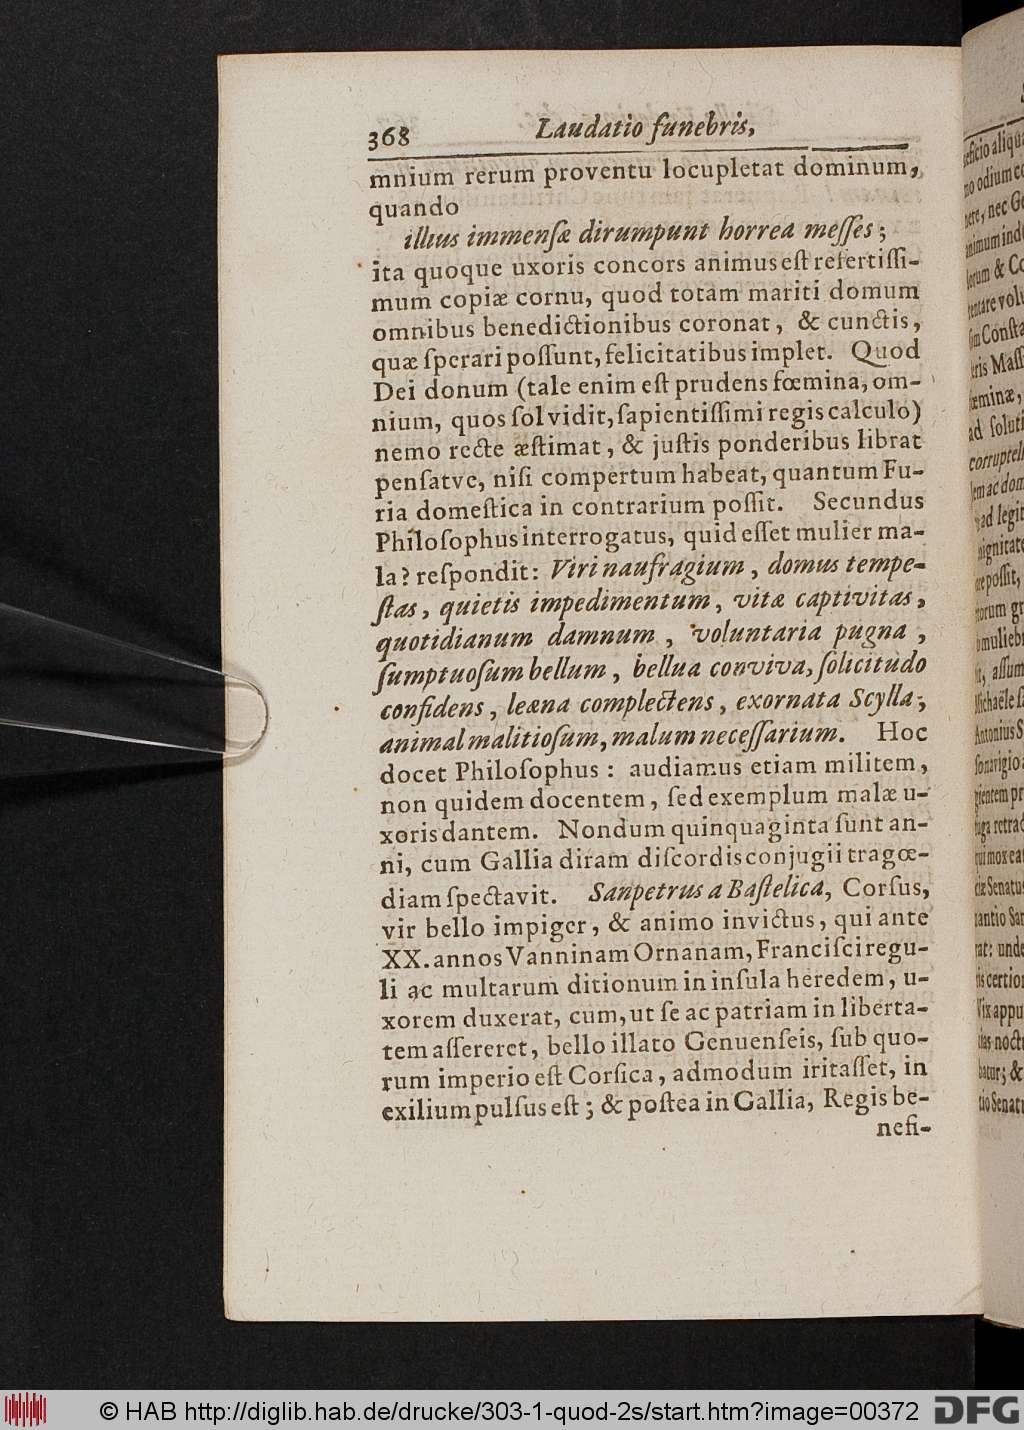 368 Laudatio funebris,
mnium rerum proventu locupletat dominum,
quando
illius immensæ dirumpunt horrea messes;
ita quoque uxoris concors animus est refertissi-
mum copiæ cornu, quod totam mariti domum
omnibus benedictionibus coronat, & cunctis,
quæ sperari possunt, felicitatibus implet. Quod
Dei donum (tale enim est prudens fœmina, om-
nium, quos sol vidit, sapientissimi regis calculo)
nemo recte æstimat, & justis ponderibus librat
pensatve, nisi compertum habeat, quantum Fu-
ria domestica in contrarium possit. Secundus
Philosophus interrogatus, quid esset mulier ma-
la? respondit: Viri naufragium, domus tempe-
stas, quietis impedimentum, vitæ captivitas,
quotidianum damnum, voluntaria pugna,
sumptuosum bellum, bellua conviva, solicitudo
confidens, leæna complectens, exornata Scylla,
animal malitiosum, malum necessarium. Hoc
docet Philosophus: audiamus etiam militem,
non quidem docentem, sed exemplum malæ u-
xoris dantem. Nondum quinquaginta sunt an-
ni, cum Gallia diram discordis conjugii tragœ-
diam spectavit. Sanpetrus a Bastelica, Corsus,
vir bello impiger, & animo invictus, qui ante
XX. annos Vanninam Ornanam, Francisci regu-
li ac multarum ditionum in insula heredem, u-
xorem duxerat, cum, ut se ac patriam in liberta-
tem assereret, bello illato Genuenseis, sub quo-
rum imperio est Corsica, admodum iritasset, in
exilium pulsus est; & postea in Gallia, Regis be-
nefi-
© HAB http://diglib.hab.de/drucke/303-1-quod-2s/start.htm?image=00372
DFG